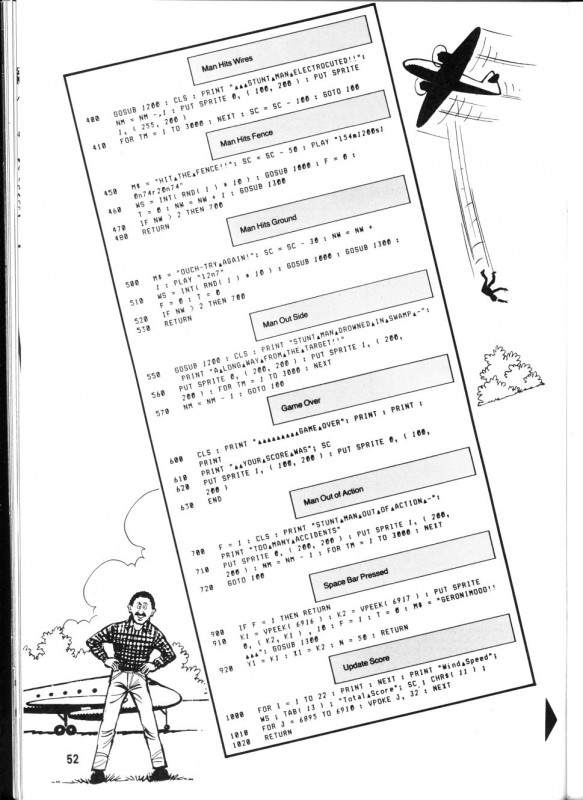 Man Hits Wires
400 GOSUB 1200 : CLS : PRINT "▲▲▲STUNT▲MAN▲ELECTROCUTED!!";
NM = NM -,1 : PUT SPRITE 0, ( 100, 200 ) : PUT SPRITE
1, ( 255, 200 )
410 FOR TM = 1 TO 3000 : NEXT : SC = SC - 100 : GOTO 100
Man Hits Fence
450 M$ = "HIT▲THE▲FENCE!!"; SC = SC - 50 : PLAY "l54m1200s1
0n74r20n74"
460 WS = INT( RND( 1 ) * 10 ) : GOSUB 1000 : F = 0 :
T = 0 : NW = NW + 1 : GOSUB 1300
470 IF NW > 2 THEN 700
480 RETURN
Man Hits Ground
500 M$ = "OUCH-TRY▲AGAIN!"; SC = SC - 30 : NW = NW +
1 : PLAY "l2n7"
510 WS = INT( RND( 1 ) * 10 ) : GOSUB 1000 : GOSUB 1300 :
F = 0 : T = 0
520 IF NW > 2 THEN 700
530 RETURN
Man Out Side
550 GOSUB 1200 : CLS : PRINT "STUNT▲MAN▲DROWNED▲IN▲SWAMP▲-";
PRINT "A▲LONG▲WAY▲FROM▲THE▲TARGET!!"
560 PUT SPRITE 0, ( 200, 200 ) : PUT SPRITE 1, ( 200,
200 ) : FOR TM = 1 TO 3000 : NEXT
570 NM = NM - 1 : GOTO 100
Game Over
600 CLS : PRINT "▲▲▲▲▲▲▲▲▲GAME▲OVER"; PRINT : PRINT :
PRINT
610 PRINT "▲▲YOUR▲SCORE▲WAS"; SC
620 PUT SPRITE 1, ( 100, 200 ) : PUT SPRITE 0, ( 100,
200 )
630 END
Man Out of Action
700 F = 1 : CLS : PRINT "STUNT▲MAN▲OUT▲OF▲ACTION▲-";
PRINT "TOO▲MANY▲ACCIDENTS"
710 PUT SPRITE 0, ( 200, 200 ) : PUT SPRITE 1, ( 200,
200 ) : NM = NM - 1 : FOR TM = 1 TO 3000 : NEXT
720 GOTO 100
Space Bar Pressed
900 IF F = 1 THEN RETURN
910 K1 = VPEEK( 6916 ) : K2 = VPEEK( 6917 ) : PUT SPRITE
0, ( K2, K1 ) , 10 : F = 1 : T = 0 : M$ = "GERONIMOOO!!
▲▲▲"; GOSUB 1300
920 Y1 = K1 : X1 = K2 : N = 50 : RETURN
Update Score
1000 FOR I = 1 TO 22 : PRINT : NEXT : PRINT "Wind▲Speed";
WS ; TAB( 13 ) ; "Total▲Score"; SC ; CHR$( 11 ) ;
1010 FOR J = 6895 TO 6910 : VPOKE J, 32 : NEXT
1020 RETURN
52